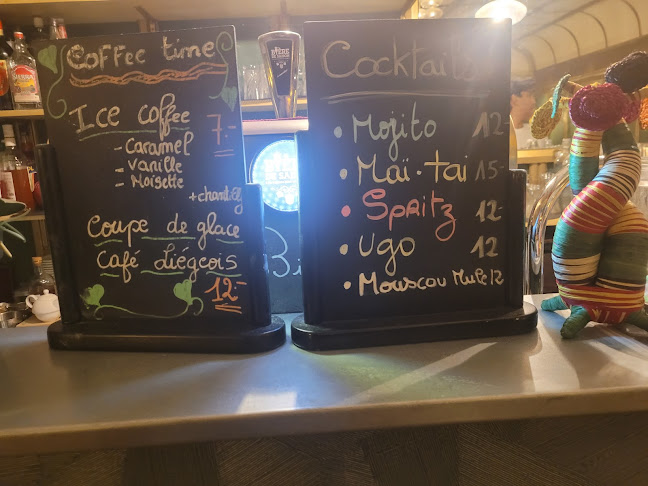 Coffee time
Ice coffee 7.-
- Caramel
- Vanille
- Noisette
+ chantilly
Coupe de glace
Café Liégeois
12.-
Cocktails
• Mojito 12.-
• Maï-tai 15.-
• Spritz 12.-
• Ugo 12
• Mouscou Mule 12